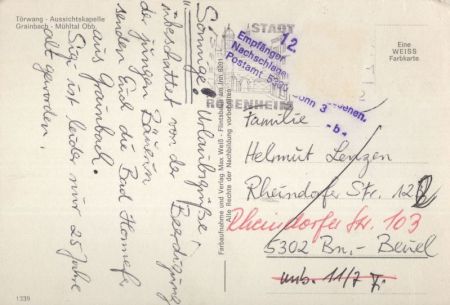 Törwang - Aussichtskapelle
Grainbach - Mühltal Obb.
Sonnige Urlaubsgrüße,
überschattet von der Beerdigung
der jungen Bäuerin
senden Euch die Bad Honnefer
aus Grainbach.
Sie ist leider nur 25 Jahre
alt geworden.
1339
Farbaufnahme und Verlag Max Weiß
Alle Rechte der Nachbildung vorbehalten
STADT
ROSENHEIM
12.
Empfänger
Nachschlagen
Postamt
Bonn 3
-b-
Eine
WEISS
Farbkarte
Familie
Helmut Lenzen
Rheindorfer Str. 12
Rheindorfer Str. 103
5302 Bn.-Beuel
unb. 11/7